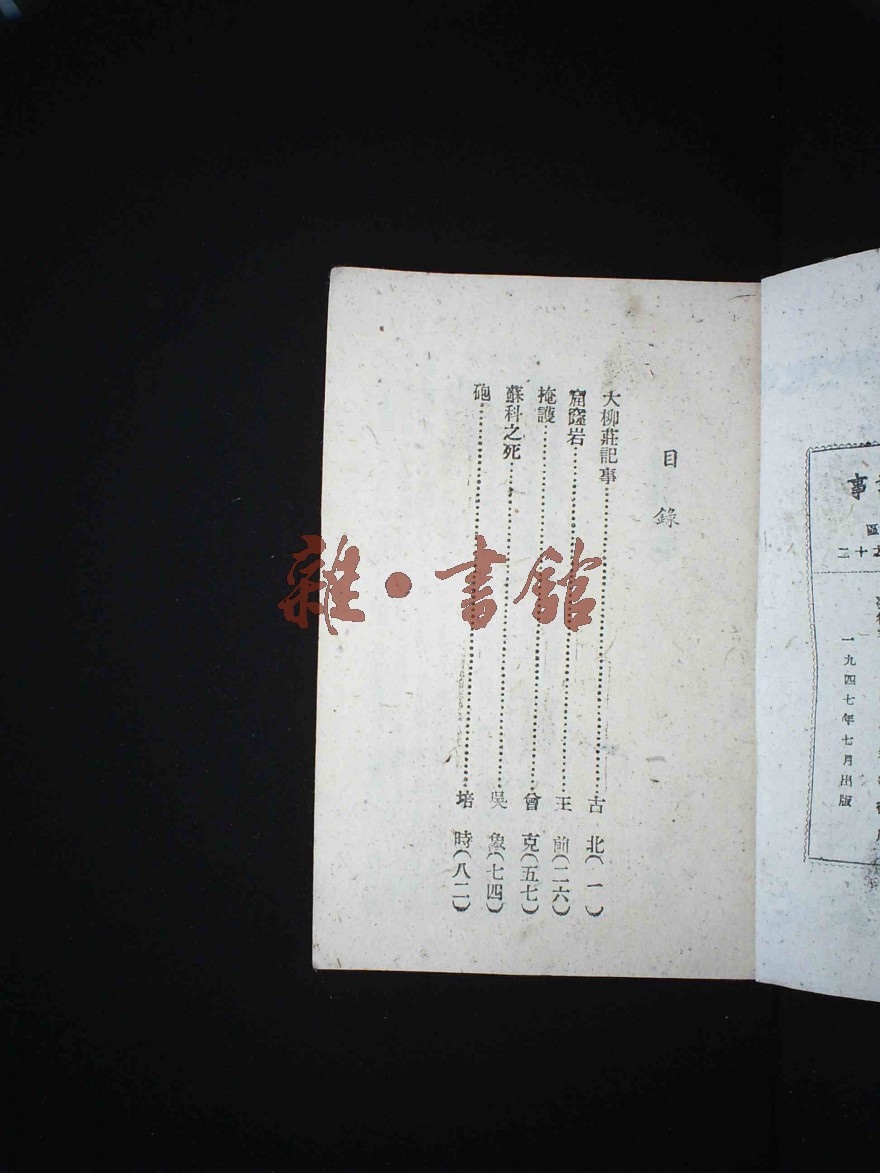 事
區
二十五
一九四七年七月出版
目錄
大柳莊記事……古北(一)
窟窿岩……王前(二六)
掩護……曾克(五七)
蘇科之死……吳象(七四)
砲……培時(八二)
雜·書館